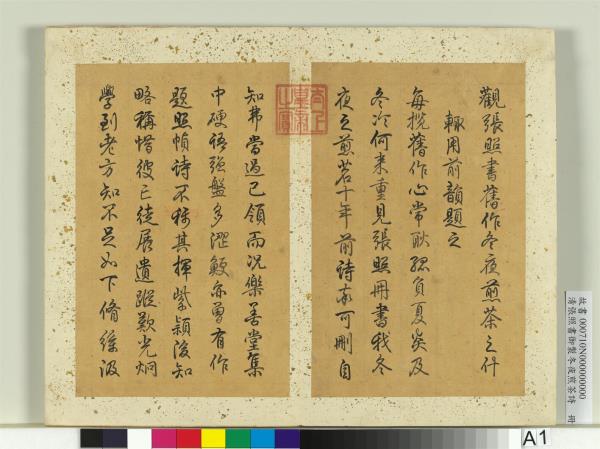 觀張照書舊作冬夜煎茶之什
輙用前韻題之
每攬舊作心常恥孤負夏矣及
冬冷何来重見張照冊書我冬
夜之煎茗十年前詩都可刪自
知弗當過已領而况樂善堂集
中硬語強盤多澀鯁亦曾有作
題照幀詩不稱其揮紫穎後知
略稱惜彼已徒展遺蹤歎光炯
學到老方知不足如下脩綆汲
故書000710N000000000
清張照書御製冬夜煎茶詩 冊
A1